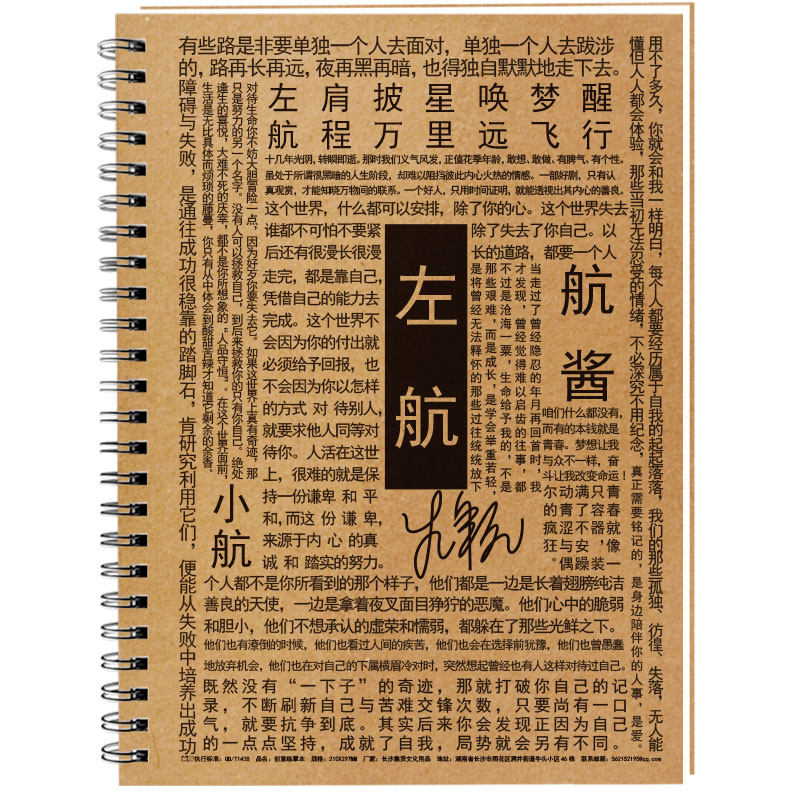 有些路是非要单独一个人去面对，单独一个人去跋涉
的，路再长再远，夜再黑再暗，也得独自默默地走下去。
障碍与失败，是通往成功很稳靠的踏脚石，肯研究利用它们，便能从失败中培养出成功
对待生命你不妨大胆冒险一点，因为好歹你要失去它。如果这世界上真有奇迹，那
只是努力的另一个名字。没有人可以拯救自己，到后来拯救你的只有你自己。绝处
逢生的喜悦，大难不死的庆幸，都不是你所想象的“人品守恒”。在这个世界面前，
生活是无比具体而烦琐的藤蔓，你只有从中体会到酸甜苦辣才知道它剩余的余香。
左肩披星唤梦醒
航程万里远飞行
十几年光阴，转瞬即逝。那时我们义气风发，正值花季年龄，敢想、敢做、有脾气，有个性。
虽处于所谓很黑暗的人生阶段，却难以阻挡彼此内心火热的情感。一部好剧，只有认
真观赏，才能知晓万物间的联系。一个好人，只用时间证明，就能透视出其内心的善良。
这个世界，什么都可以安排，除了你的心。这个世界失去
谁都不可怕不要紧
除了失去了你自己。以
后还有很漫长很漫
长的道路，都要一个人
走完，都是靠自己，
凭借自己的能力去
完成。这个世界不
会因为你的付出就
必须给予回报，也
不会因为你以怎样
的方式 对 待别人，
就要求他人同等对
待你。人活在这世
上，很难的就是保
持一份谦卑 和 平
和，而这 份 谦 卑，
来源于内 心 的真
诚 和 踏实的努力。
左航
当走过了曾经隐忍的年月再回首时，我
才发现，曾经觉得难以启齿的往事，都
不过是沧海一粟，生命给予我的，不是
那些艰难，而是成长，是学会举重若轻，
是将曾经无法释怀的那些过往统统放下
航酱
咱们什么都没有，
而有的本钱就是
青春。梦想让我
与众不一样，奋
斗让我改变命运！
青春就像一
只容器，装
满了不安躁
动青涩与偶
尔的疯狂。
小航
用不了多久，你就会和我一样明白，每个人都要经历属于自我的起起落落，我们的那些孤独、彷徨、失落，无人能
懂但人人都会体验，那些当初无法忍受的情绪，不必深究不用纪念，真正需要铭记的，是身边陪伴你的人事，是爱。
个人都不是你所看到的那个样子，他们都是一边是长着翅膀纯洁
善良的天使，一边是拿着夜叉面目狰狞的恶魔。他们心中的脆弱
和胆小，他们不想承认的虚荣和懦弱，都躲在了那些光鲜之下。
他们也有潦倒的时候，他们也看过人间的疾苦，他们也会在选择前犹豫，他们也曾愚蠢
地放弃机会，他们也在对自己的下属横眉冷对时，突然想起曾经也有人这样对待过自己。
既然没有“一下子”的奇迹，那就打破你自己的记
录，不断刷新自己与苦难交锋次数，只要尚有一口
气，就要抗争到底。其实后来你会发现正因为自己
的一点点坚持，成就了自我，局势就会另有不同。
执行标准：QB/T1438 品名：创意线草本 规格：210X297MM 厂家：长沙集贤文化用品 地址：湖南省长沙市雨花区洞井街道牛头小区46栋 联系邮箱：562152195@qq.com